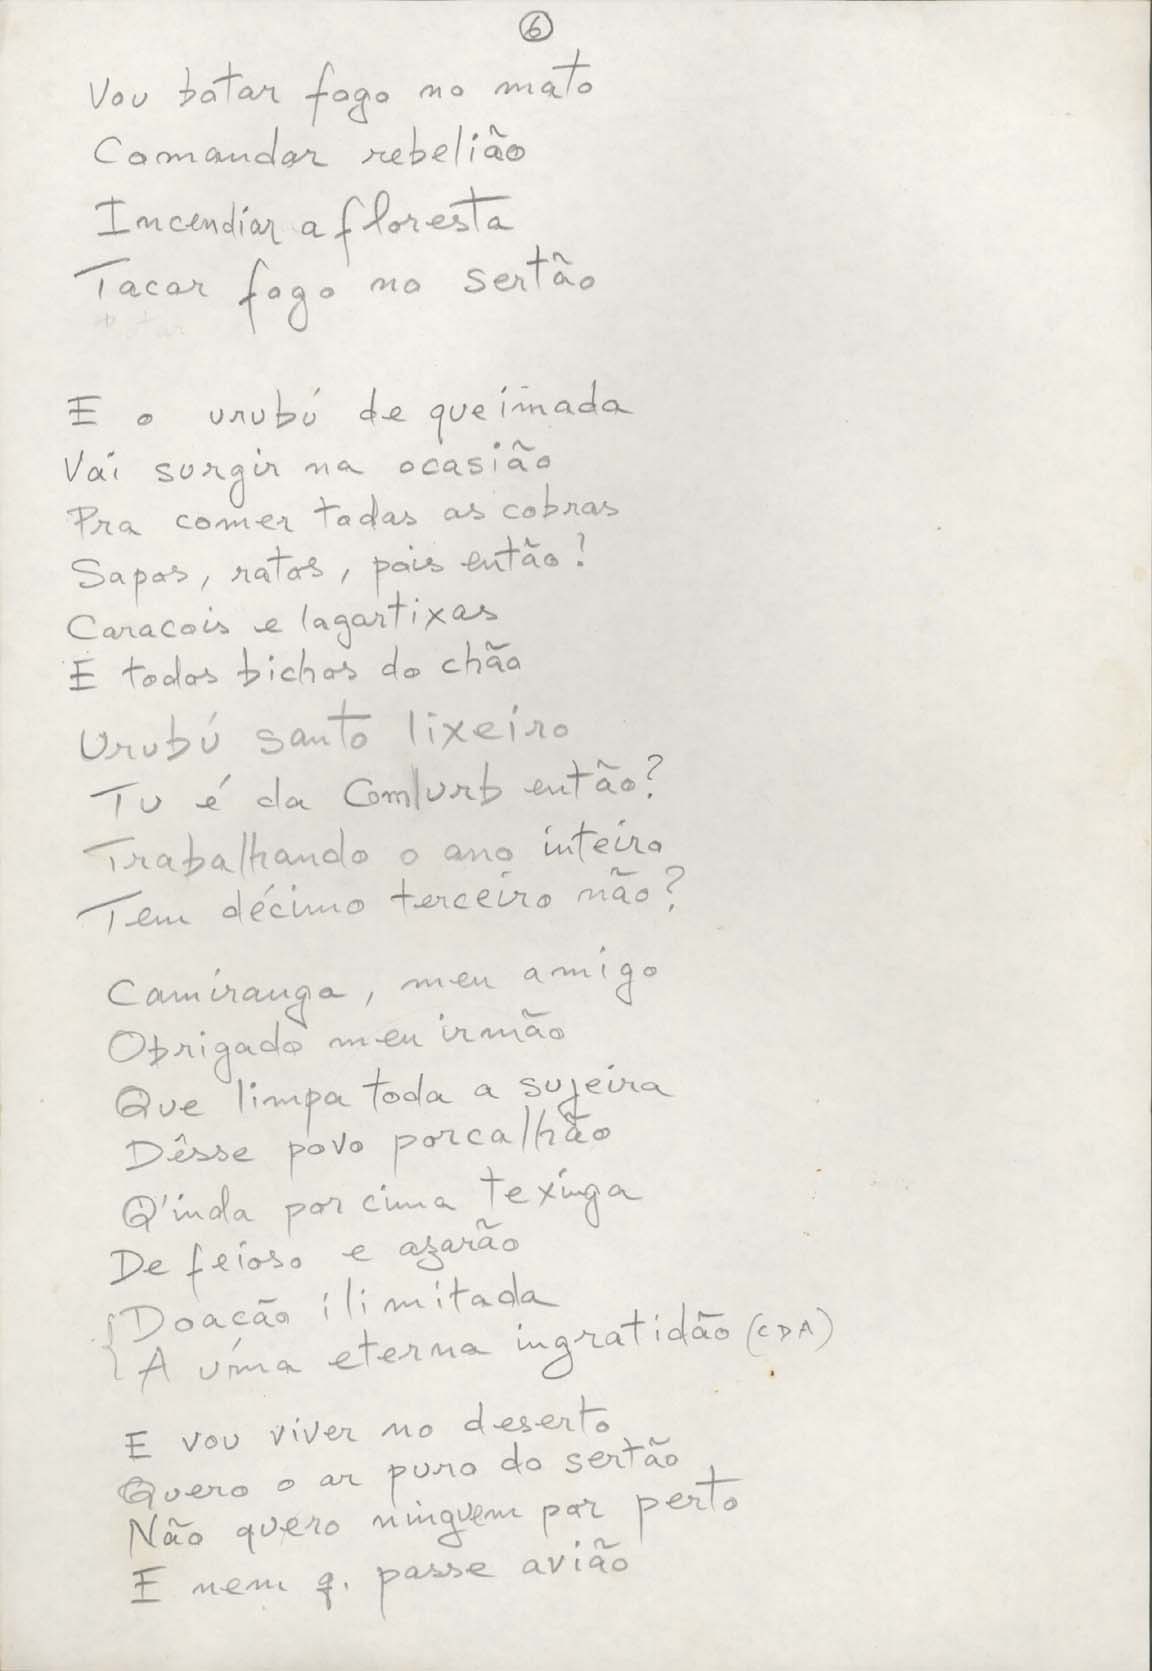 6
Vou botar fogo no mato
Comandar rebelião
Incendiar a floresta
Tacar fogo no sertão
E o urubú de queimada
Vai surgir na ocasião
Pra comer todas as cobras
Sapos, ratos, pois então!
Caracois e lagartixas
E todos bichos do chão
Urubú santo lixeiro
Tu é da Comlurb então?
Trabalhando o ano inteiro
Tem décimo terceiro não?
Camiranga, meu amigo
Obrigado meu irmão
Que limpa toda a sujeira
Dêsse povo porcalhão
Q'inda por cima te xinga
De feioso e azarão
Doacão ilimitada
A uma eterna ingratidão (CDA)
E vou viver no deserto
Quero o ar puro do sertão
Não quero ninguem por perto
E nem q. passe avião